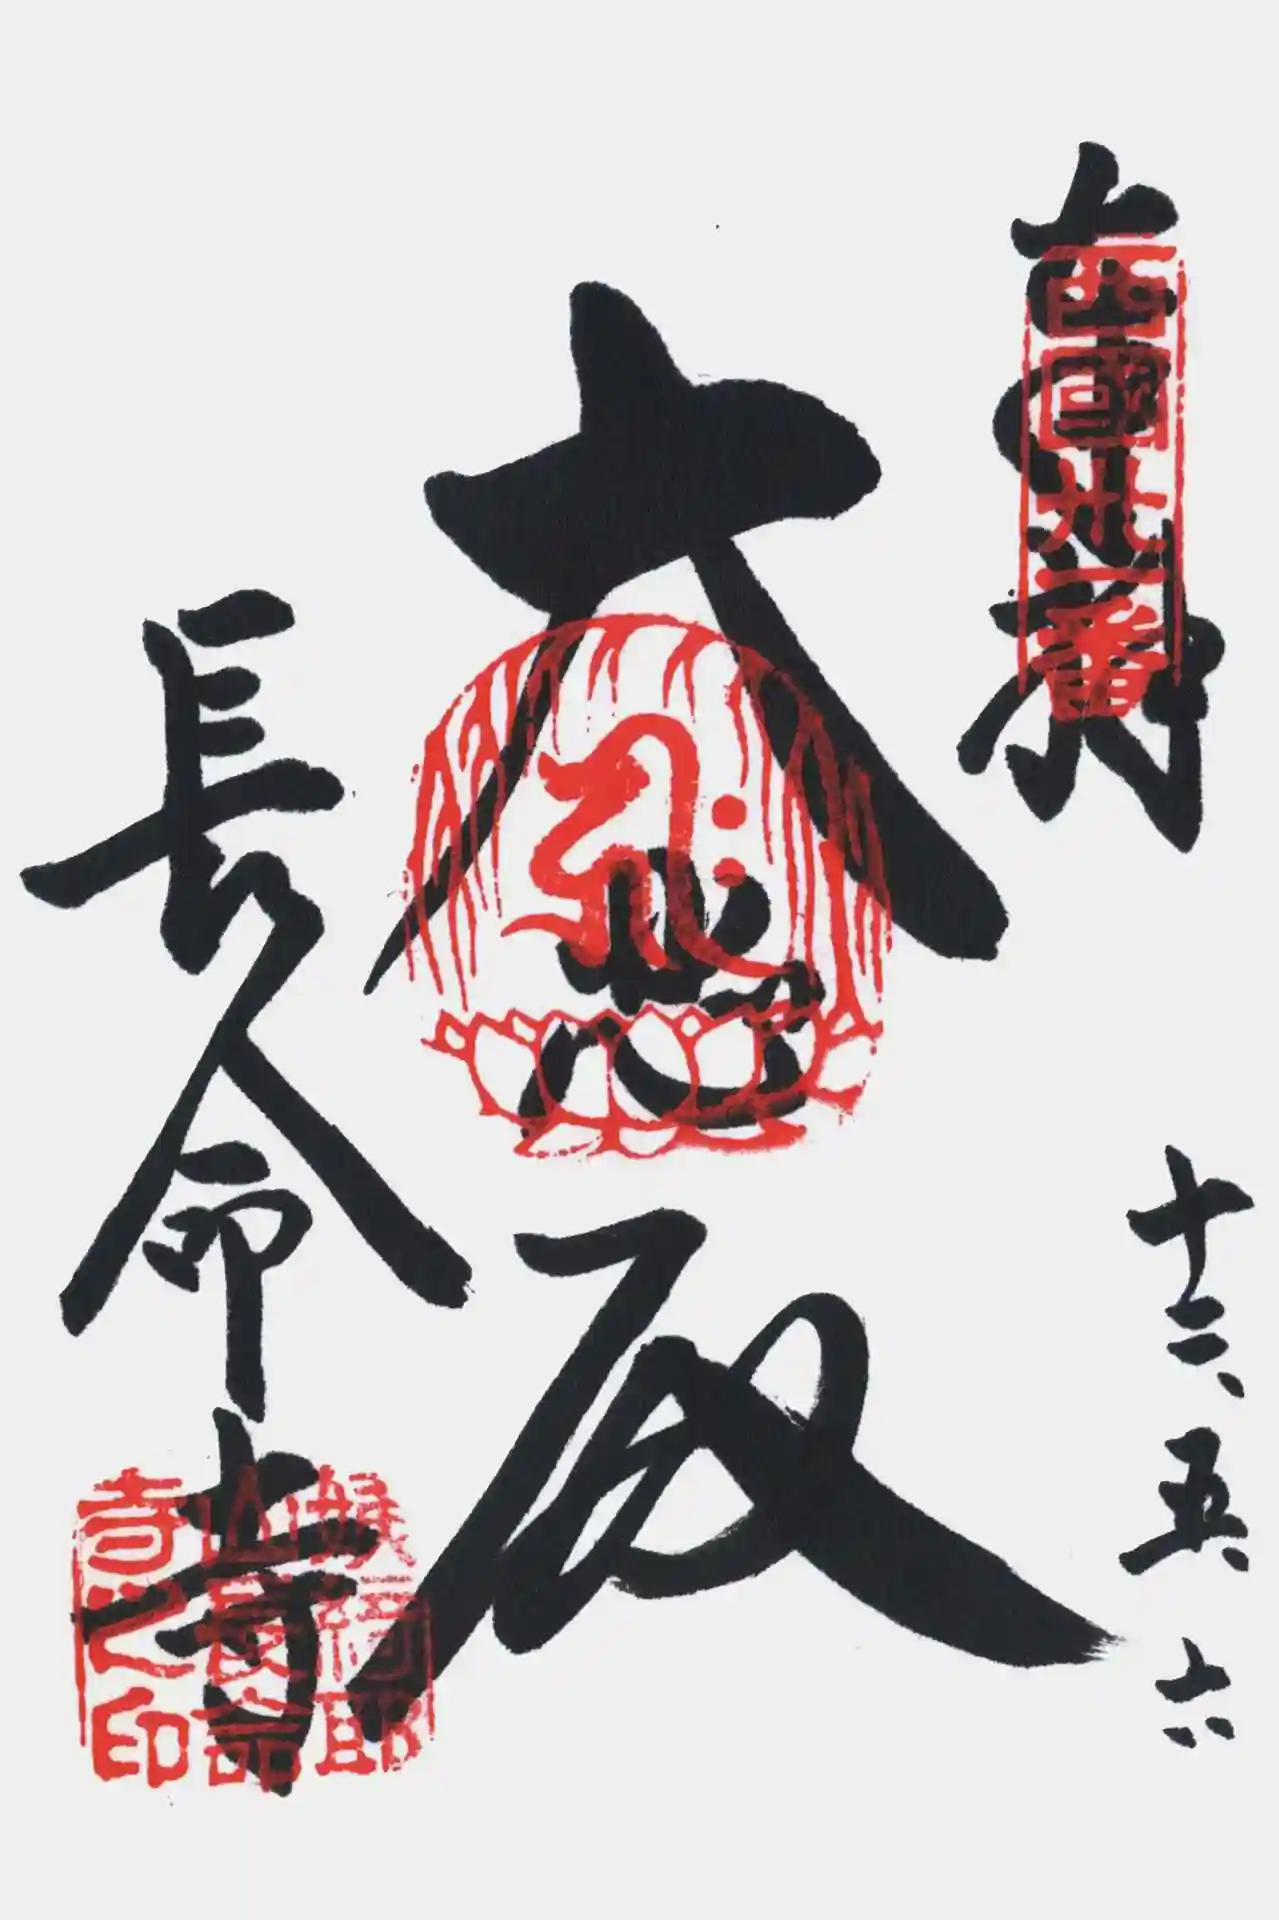 奉拝
西國卅一番
十二、五、六
大悲殿
長命寺
姨綺耶
山長命
寺之印